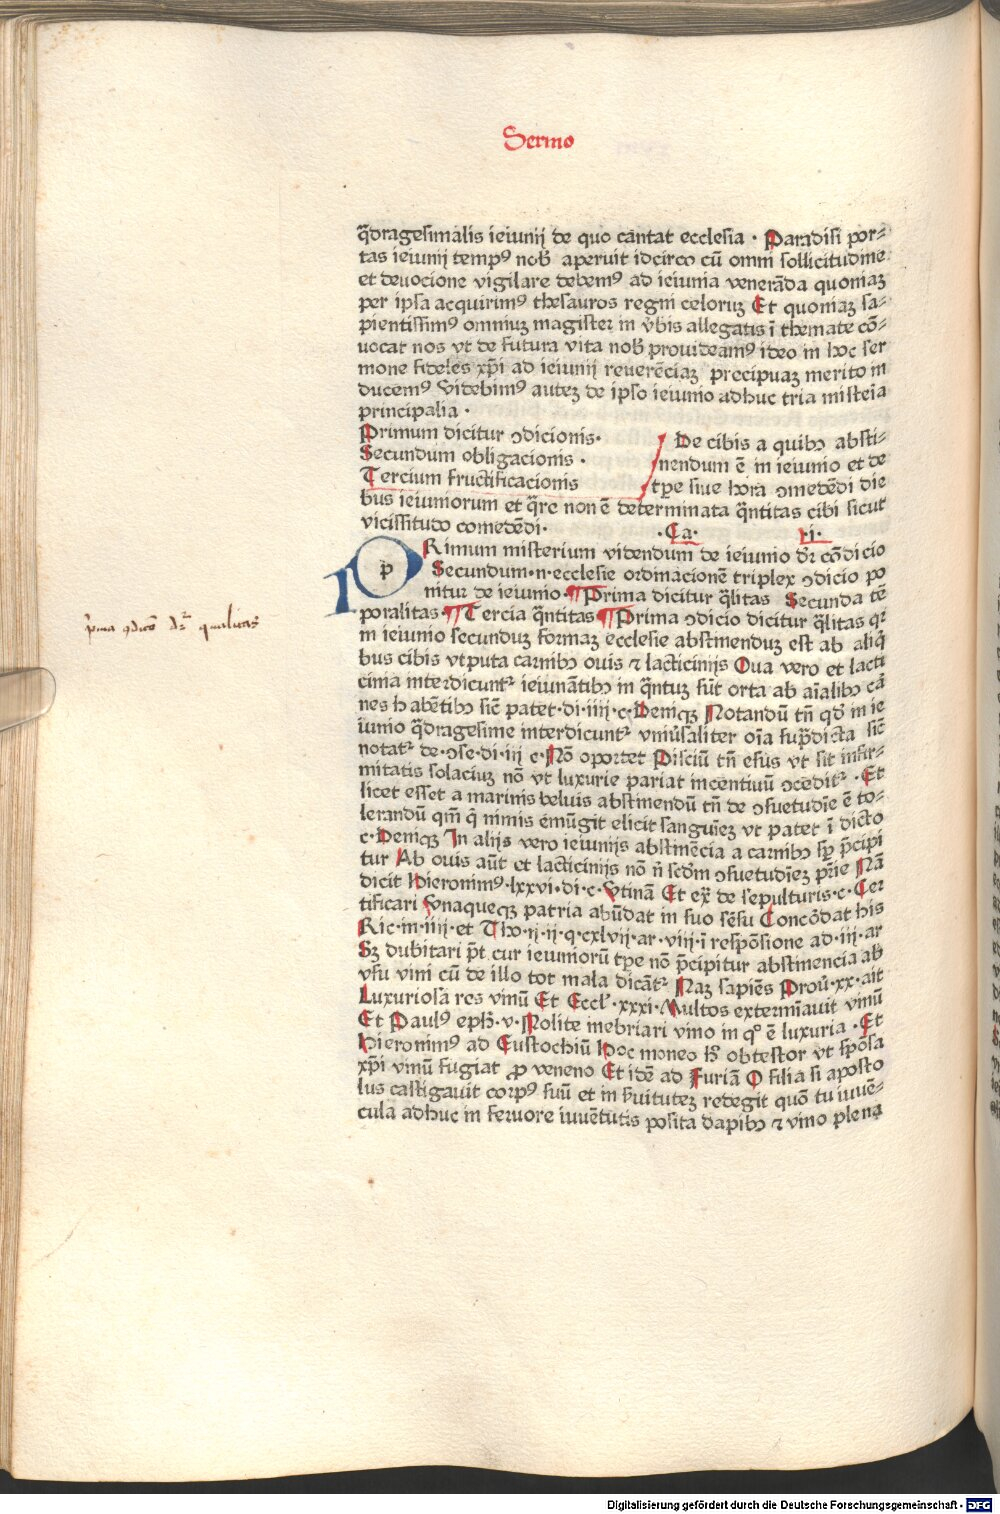 Sermo
q̄dragesimalis ieiunij de quo cantat ecclesia · Paradisi por⸗
tas ieiunij tempꝰ nob̄ aperuit idcirco cū omni sollicitudine
et deuocione vigilare debemꝰ ad ieiunia venerāda quoniaꝫ
per ipsa acquirimꝰ thesauros regni celoruꝫ Et quoniaꝫ sa⸗
pientissimꝰ omniuꝫ magister in v̄bis allegatis ī themate cō⸗
uocat nos vt de futura vita nob̄ prouideamꝰ ideo in hoc ser
mone fideles xp̄i ad ieiunij reuerēciaꝫ precipuaꝫ merito in
ducemꝰ Videbimꝰ auteꝫ de ipso ieiunio adhuc tria misteīa
principalia ·
Primum dicitur ↄdicionis·
Secundum obligacionis ·
Tercium fructificacionis
De cibis a quibꝫ absti⸗
nendum ē in ieiunio et de
tꝑe siue hora ↄmedēdi die
bus ieiuniorum et q̄re non ē determinata q̄ntitas cibi sicut
vicissitudo comedēdi· ·Ca· ·i·
p̄
PRimum misterium videndum de ieiunio dr̄ cōdicio
Secundum·n·ecclesie ordinacionē triplex ↄdicio po
nitur de ieiunio·¶Prima dicitur q̄litas Secunda tē
poralitas·¶Tercia q̄ntitas¶Prima ↄdicio dicitur q̄litas qꝛ
in ieiunio secunduꝫ formaꝫ ecclesie abstinenduꝫ est ab aliq̄
bus cibis vtputa carnibꝫ ouis ⁊ lacticinijs Oua vero et lacti
cinia interdicuntᷣ ieiunātibꝫ in q̄ntuꝫ sūt orta ab aīalibꝫ cā
nes habētibꝫ sic̄ patet·di·iiij·c·Deniqꝫ Notandū tn̄ qd̄ in ie
iunio q̄dragesime interdicuntᷣ vniūsaliter oīa sup̄dicta sic̄
notatᷣ de·ↄse·di·iij c·Nō oportet Pisciū tn̄ esus vt sit infir⸗
mitatis solaciuꝫ nō vt luxurie pariat incentiuū ↄceditᷣ · Et
licet esset a marinis beluis abstinendū tn̄ de ↄsuetudīe ē to⸗
lerandū qm̄ q̄ nimis emūgit elicit sanguīeꝫ vt patet ī dicto
c·Deniqꝫ In alijs vero ieiunijs abstinēcia a carnibꝫ sꝑ p̄cipi
tur Ab ouis aūt et lacticinijs nō n̄ scd̄m ↄsuetudīeꝫ pr̄ie Nā
dicit Hieronimꝰ·lxxvi·di·c·Vtinā Et ex̄ de sepulturis·c·Cer
tificari Vnaqueqꝫ patria abūdat in suo sēsu Concōdat his
Ric·in·iiij·et Tho·ij·ij·q·cxlvij·ar·viij·ī respōsione ad·iij·ar
Sꝫ dubitari pt̄ cur ieiunorū tꝑe nō p̄cipitur abstinencia ab
vsu vini cū de illo tot mala dicātᷣ Naꝫ sapiēs Prou̅·xx·ait
Luxuriosa res vinū Et Eccl̄·xxxi·Multos exterminauit vinū
Et Paulꝰ eph̄·v·Nolite inebriari vino in qº ē luxuria · Et
Hieronimꝰ ad Eustochiū Hoc moneo h̄ obtestor vt sp̄osa
xp̄i vinū fugiat ꝓ veneno Et idē ad Furiā O filia si aposto
lus castigauit corpꝰ suū et in s̄uituteꝫ redegit quō tu iuuē⸗
cula adhuc in feruore iuuētutis posita dapibꝫ ⁊ vino plena
p̄ma ↄdicō dr̄ qualitas
Digitalisierung gefördert durch die Deutsche Forschungsgemeinschaft · DFG